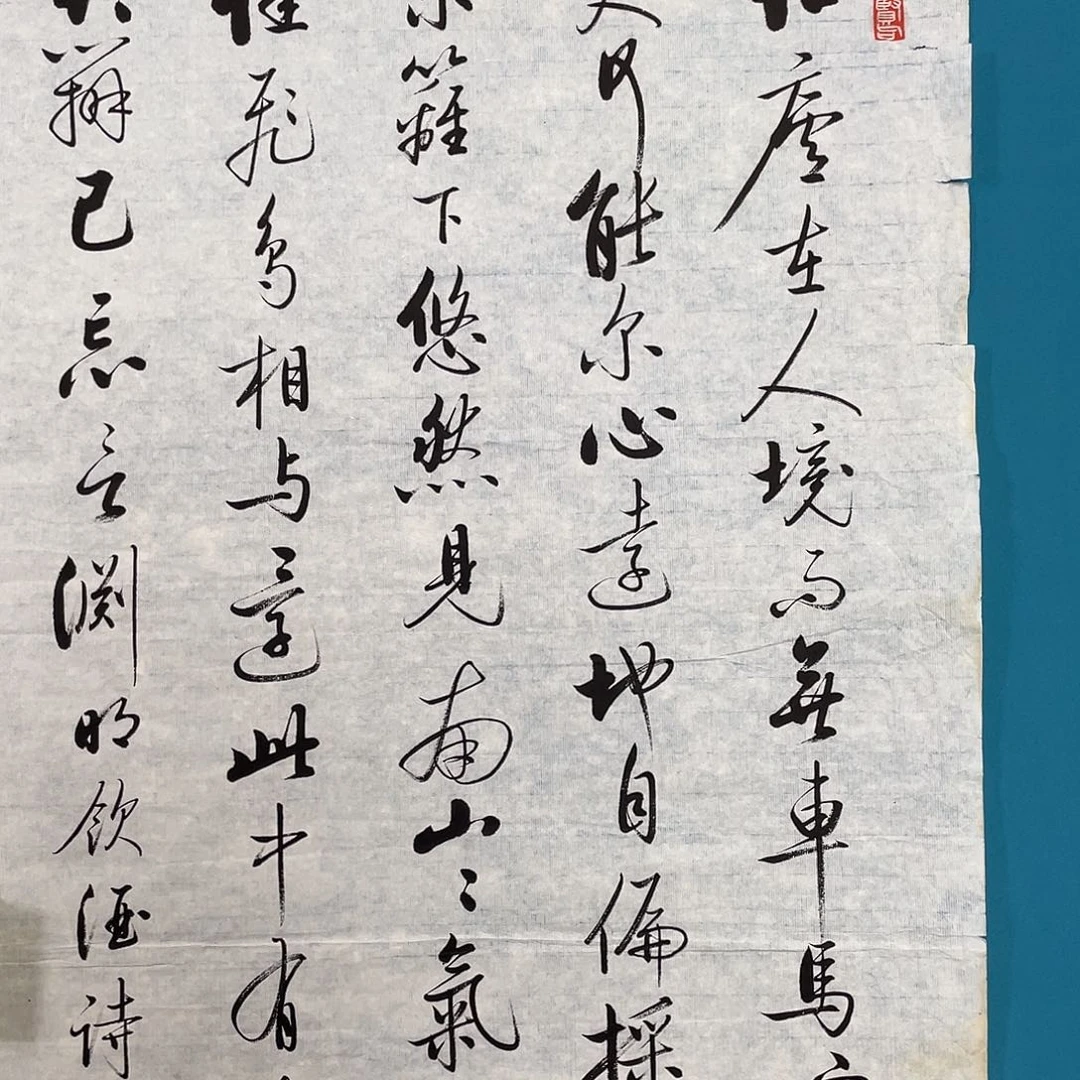 廬在人境而無車馬
何能尔心遠地自偏採
籬下悠然見南山〻氣
飛鳥相与還此中有
辨已忘言淵明飲酒詩